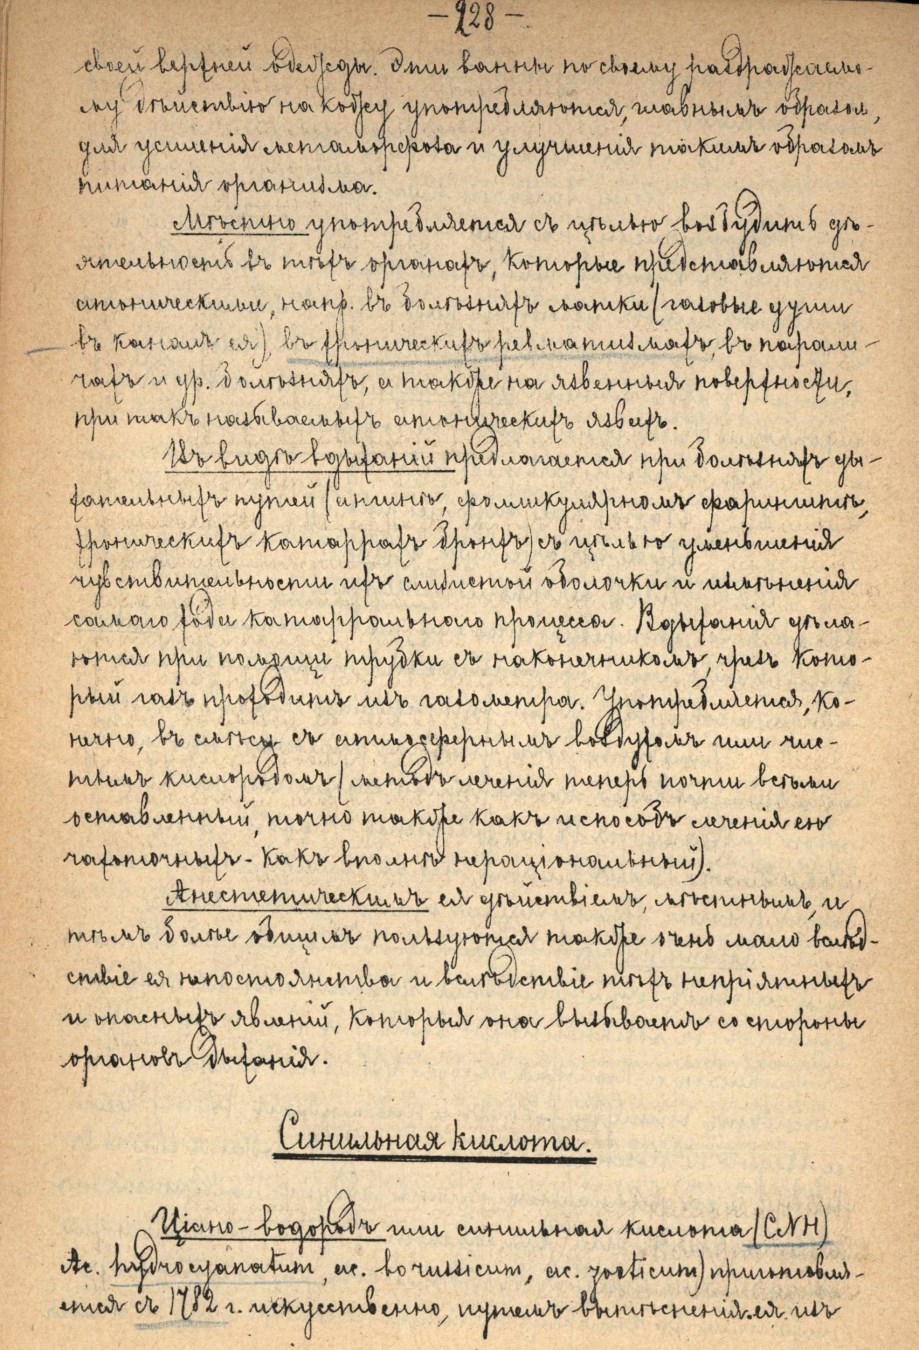 — 228 —
своей верхней одежды. Эти ванны по своему раздражаемо-
му дѣйствію на кожу употребляются, главнымъ образом,
для усиленія метаморфоза и улучшенія такимъ образомъ
питанія организма.
Мѣстно употребляется съ цѣлью возбудить дѣ-
ятельность въ тѣхъ органахъ, которые представляются
атоническими, напр. въ болѣзняхъ матки (газовые души
въ каналъ ея), въ хроническихъ ревматизмахъ, въ парали-
чахъ и др. болѣзняхъ, а также на язвенныя поверхности,
при такъ называемыхъ атоническихъ язвахъ.
Въ видѣ вдыханій предлагается при болѣзняхъ ды-
хательныхъ путей (ангинѣ, фолликулярномъ фарингитѣ,
хроническихъ катаррахъ бронхъ) съ цѣлью уменьшенія
чувствительности ихъ слизистой оболочки и измѣненія
самаго хода катарральнаго процесса. Вдыханія дѣла-
ются при помощи трубки съ наконечникомъ, чрезъ кото-
рый газъ проходитъ изъ газометра. Употребляется, ко-
нечно, въ смѣси съ атмосфернымъ воздухомъ или чис-
тымъ кислородомъ (методъ леченія теперь почти всѣми
оставленный, точно также какъ и способъ леченія ею
чахоточныхъ - какъ вполнѣ нераціональный).
Анестетическимъ ея дѣйствіемъ, мѣстнымъ, и
тѣмъ болѣе общимъ пользуются также очень мало вслѣд-
ствіе ея непостоянства и вслѣдствіе тѣхъ непріятныхъ
и опасныхъ явленій, которыя она вызываетъ со стороны
органовъ дыханія.
Синильная кислота.
Ціано-водородъ или синильная кислота (CNH)
Ac. hydrocyanatum, ac. borussicum, ac. zooticum) приготовля-
ется съ 1782 г. искусственно, путемъ вытѣсненія ея изъ